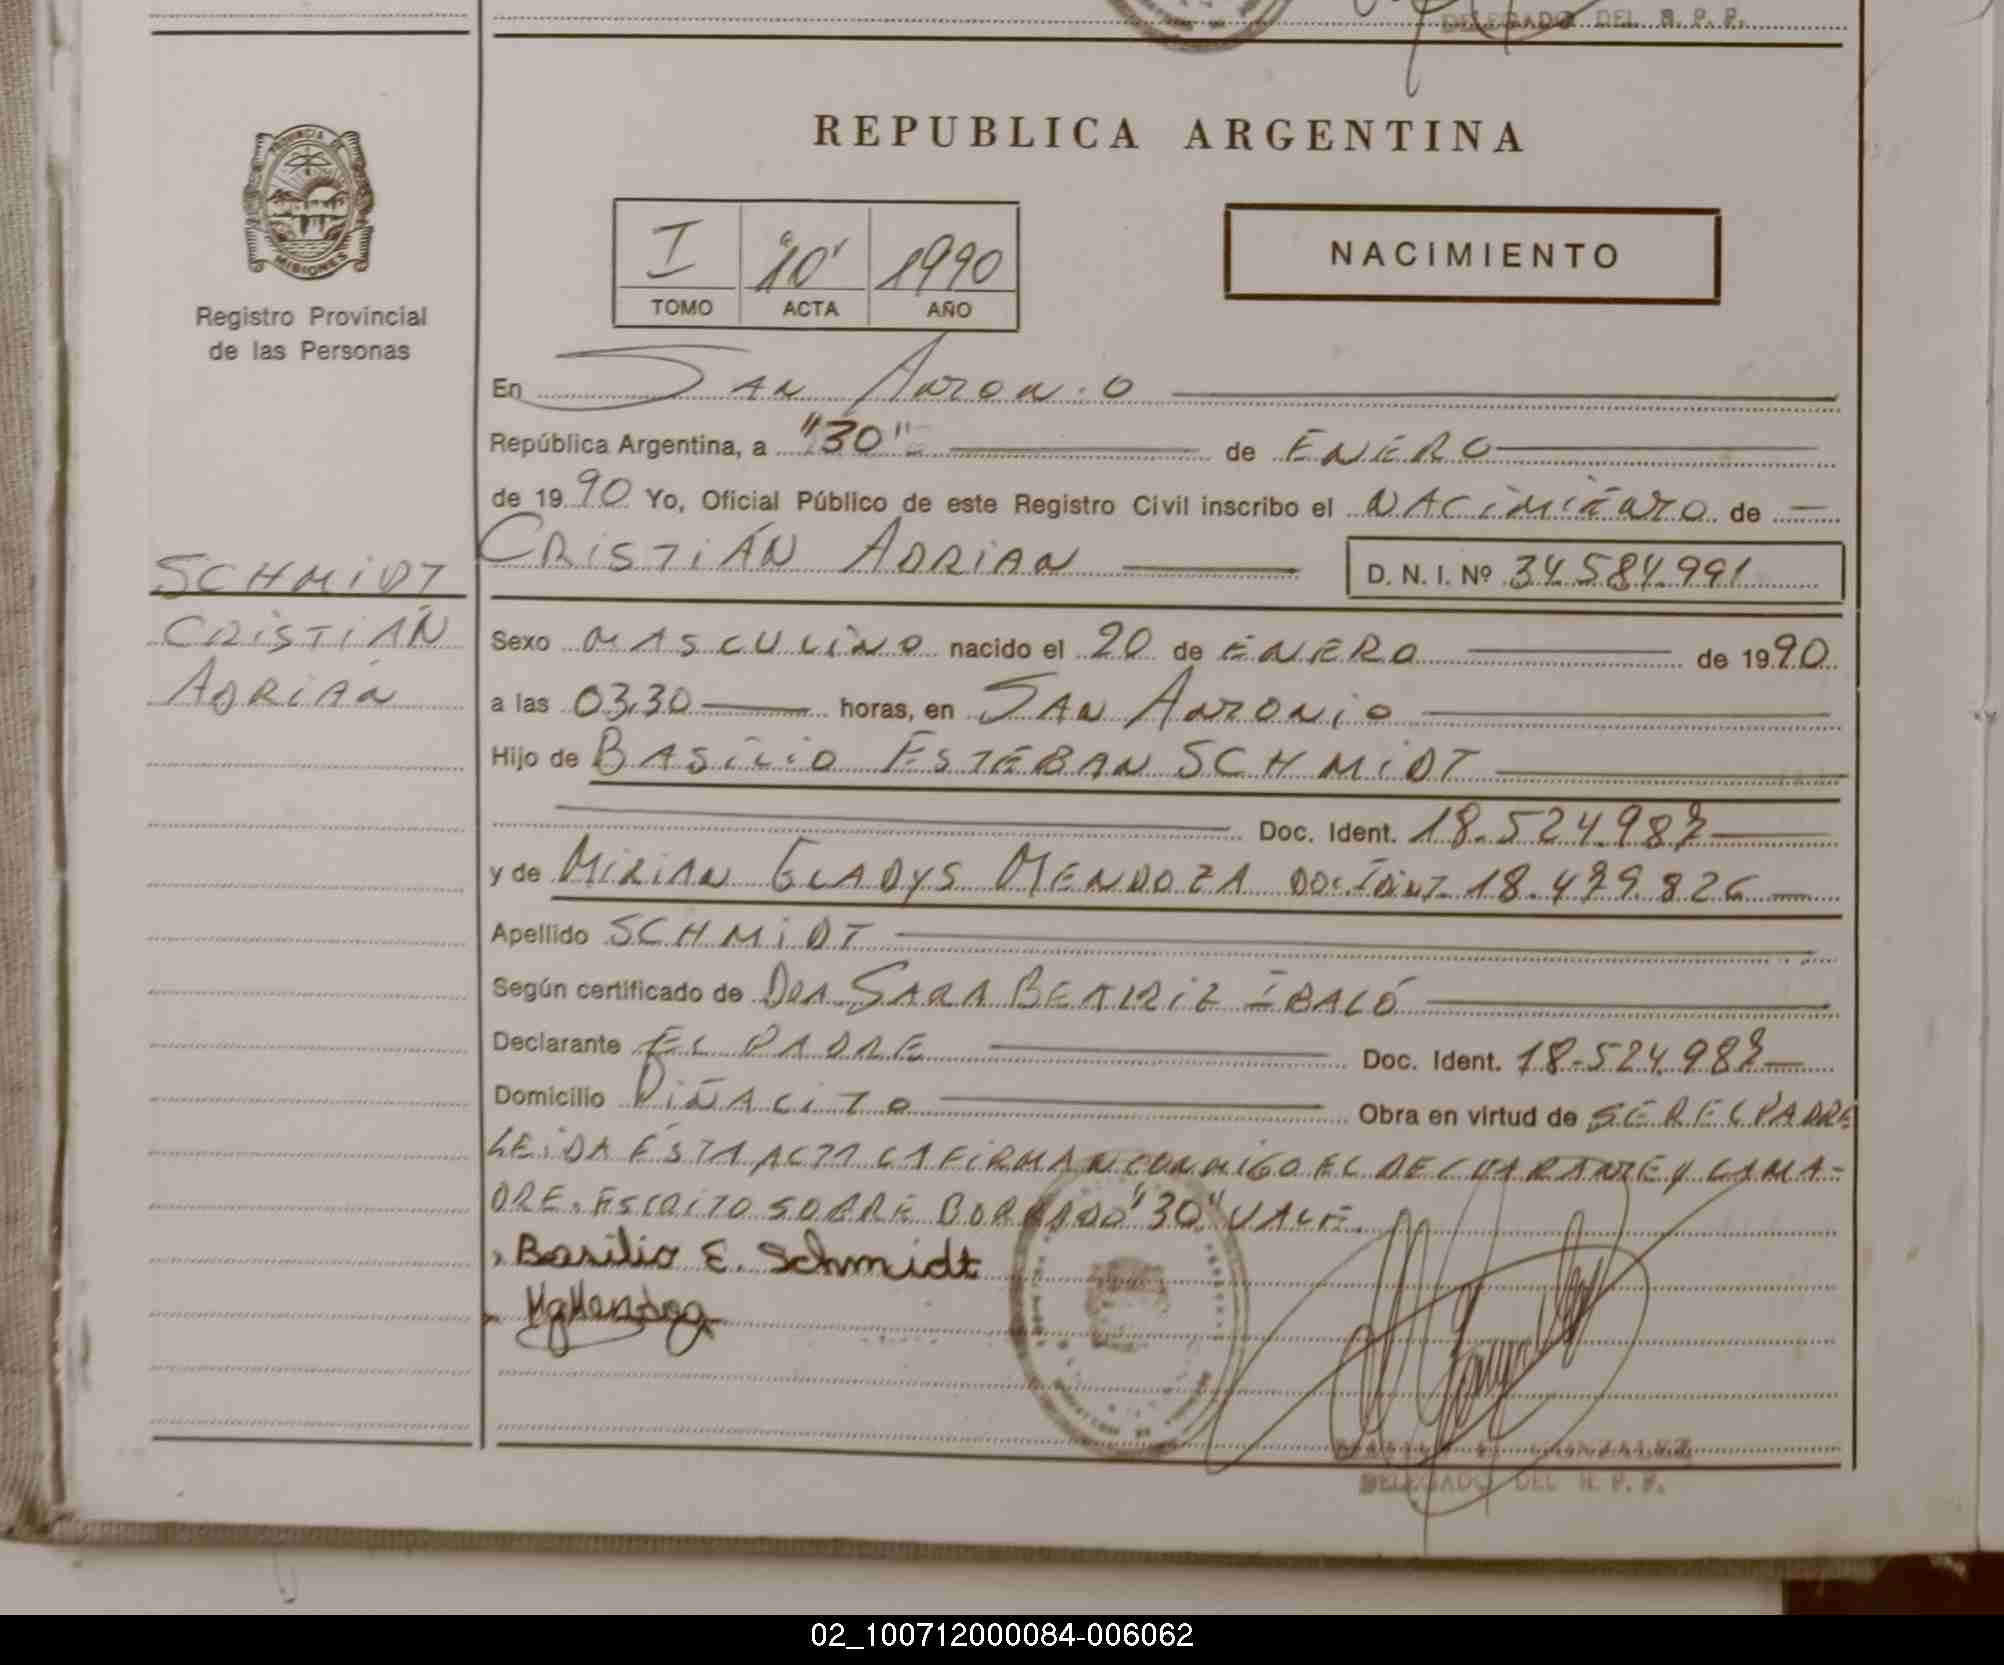 DELEGADO DEL R. P. P.
REPUBLICA ARGENTINA
PROVINCIA DE
MISIONES
Registro Provincial
de las Personas
I "10" 1990
TOMO ACTA AÑO
NACIMIENTO
En San Antonio
República Argentina, a "30" de ENERO
de 1990 Yo, Oficial Público de este Registro Civil inscribo el NACIMIENTO de
CRISTIÁN ADRIAN D. N. I. Nº 34.584.991
SCHMIDT
CRISTIÁN
ADRIÁN
Sexo MASCULINO nacido el 20 de ENERO de 1990
a las 03,30 horas, en SAN ANTONIO
Hijo de BASILIO ESTEBAN SCHMIDT
Doc. Ident. 18.524.987
y de MIRIAN GLADYS MENDOZA DOC. IDENT. 18.479.826
Apellido SCHMIDT
Según certificado de DRA SARA BEATRIZ IBALÓ
Declarante EL PADRE Doc. Ident. 18.524.987
Domicilio PIÑACITO Obra en virtud de SER EL PADRE
LEIDA ESTA ACTA LA FIRMAN CONMIGO EL DECLARANTE Y LA MA-
DRE. ESCRITO SOBRE BORRADO "30" VALE.
Basilio E. Schmidt
MgMendoza
GONZALEZ
DELEGADO DEL R. P. P.
02_100712000084-006062